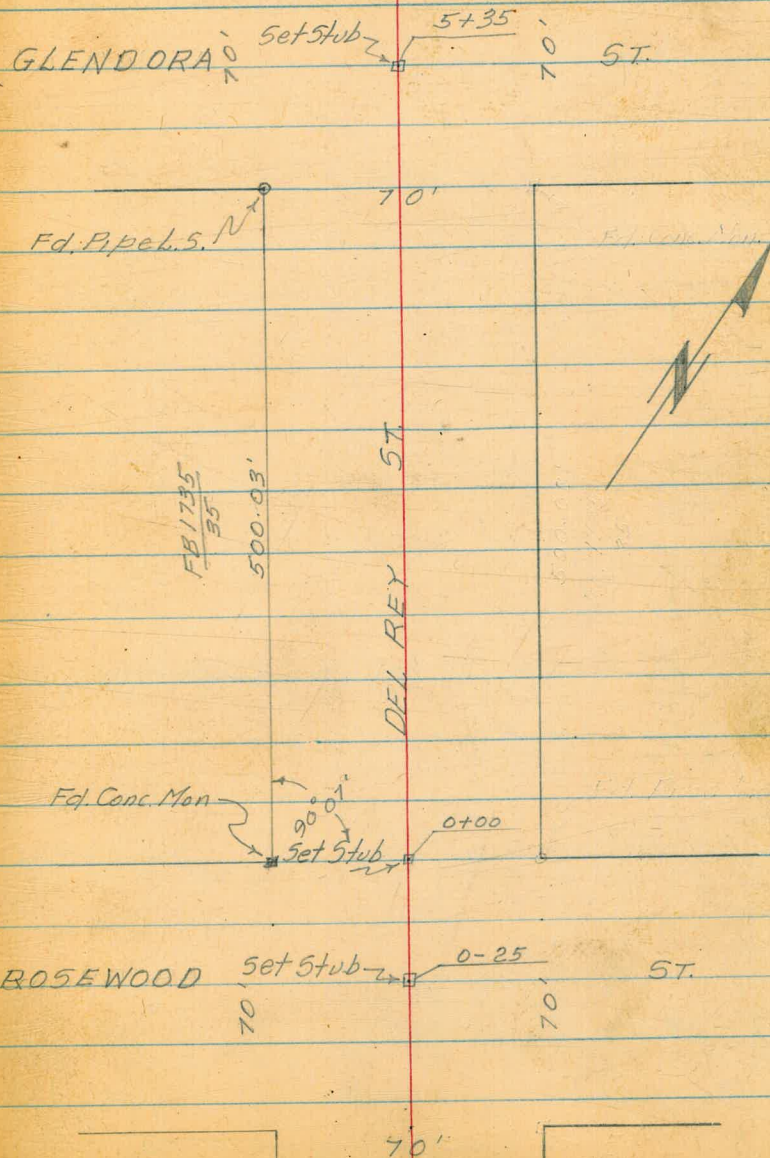 Set Stub 5+35
GLENDORA 70' 70' ST.
70'
Fd. Pipe L.S.
Fd. Conc. Mon.
FB 1735
35
500.03'
DEL REY ST.
Fd. Conc. Mon
90° 01'
Set Stub 0+00
ROSEWOOD Set Stub 0-25 ST.
70' 70'
70'